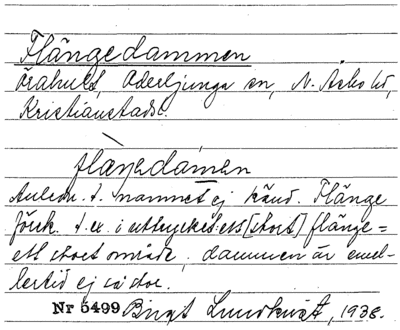 Flängedammen
Örahult, Oderljunga sn, N. Åsbo hd,
Kristianstads l.
flaŋedamen
Anledn. t. namnet ej känd. Flänge
förek. t.ex. i uttrycket ett [stort] flänge =
ett stort område, dammen är emel-
lertid ej så stor.
Nr 5499 Birgit Lundkvist, 1938.